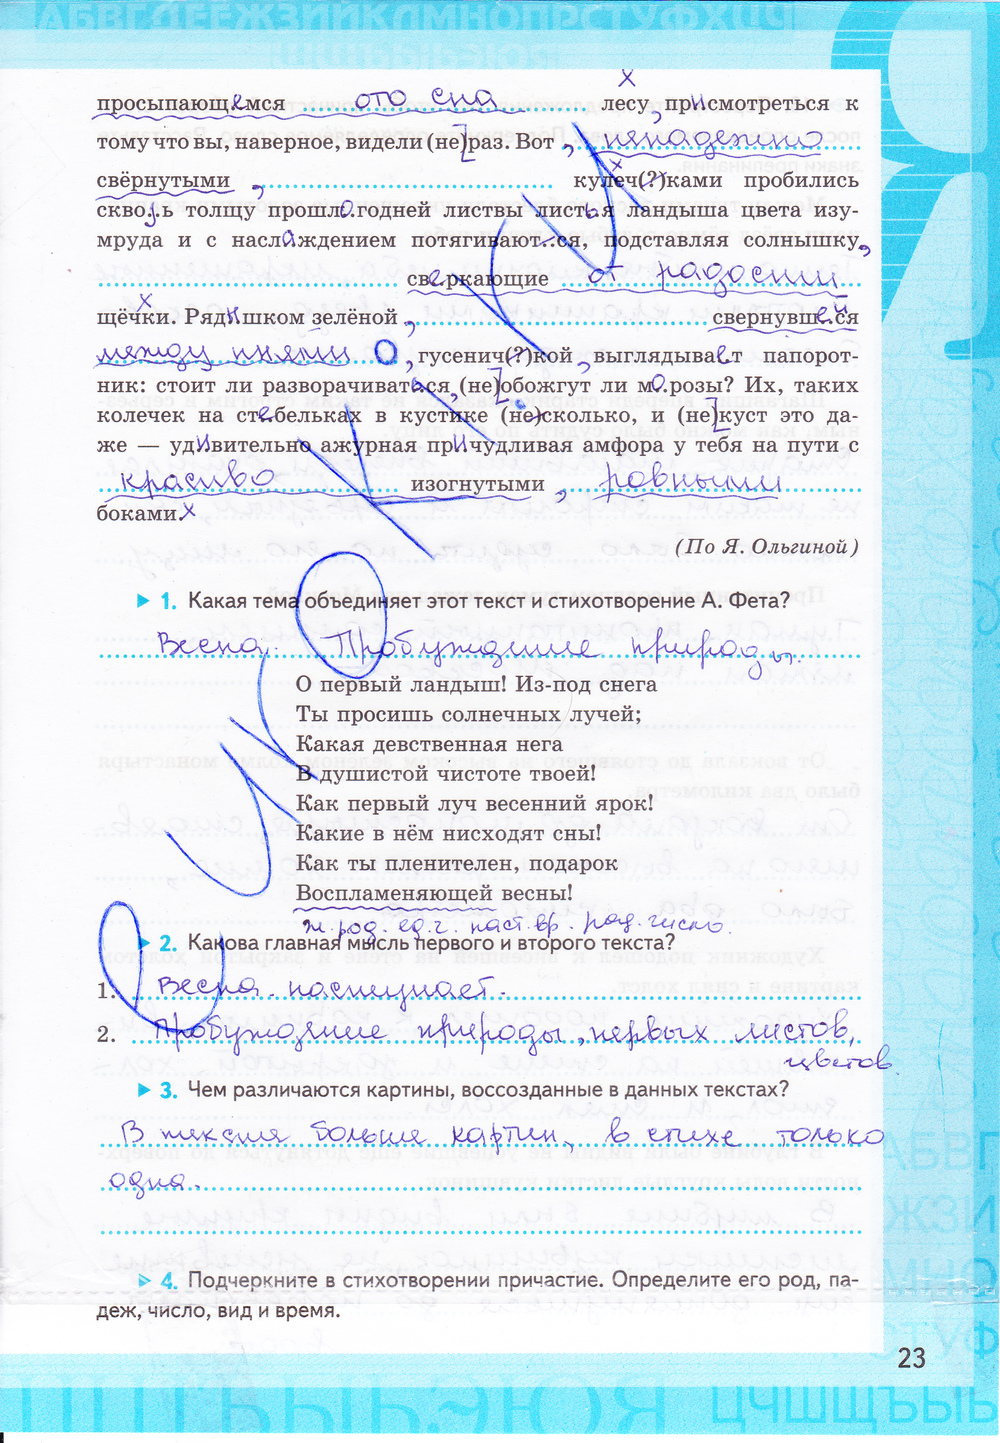 АБВГДЕЁЖЗИЙКЛМНОПРСТУФХЦЧ
ШЩЪЫЬЭЮЯ
Я
просыпающемся ото сна лесу, присмотреться к
тому что вы, наверное, видели (не) раз. Вот, ненадёжно
свёрнутыми, кулеч(?)ками пробились
сквозь толщу прошлогодней листвы листья ландыша цвета изу-
мруда и с наслаждением потягивают..ся, подставляя солнышку,
сверкающие от радости
щёчки. Рядишком зелёной, свернувшейся
между пнями, гусенич(?)кой, выглядывает папорот-
ник: стоит ли разворачиваться, (не) обожгут ли морозы? Их, таких
колечек на стебельках в кустике (не)сколько, и (не) куст это да-
же — удивительно ажурная причудливая амфора у тебя на пути с
красиво изогнутыми, ровными
боками.
(По Я. Ольгиной)
1. Какая тема объединяет этот текст и стихотворение А. Фета?
Весна. Пробуждение природы.
О первый ландыш! Из-под снега
Ты просишь солнечных лучей;
Какая девственная нега
В душистой чистоте твоей!
Как первый луч весенний ярок!
Какие в нём нисходят сны!
Как ты пленителен, подарок
Воспламеняющей весны!
ж.род. ед.ч. наст.вр. род.
2. Какова главная мысль первого и второго текста?
1. Весна наступает.
2. Пробуждение природы, первых листов,
цветов.
3. Чем различаются картины, воссозданные в данных текстах?
В тексте больше картин, в стихе только
одна.
4. Подчеркните в стихотворении причастие. Определите его род, па-
деж, число, вид и время.
23